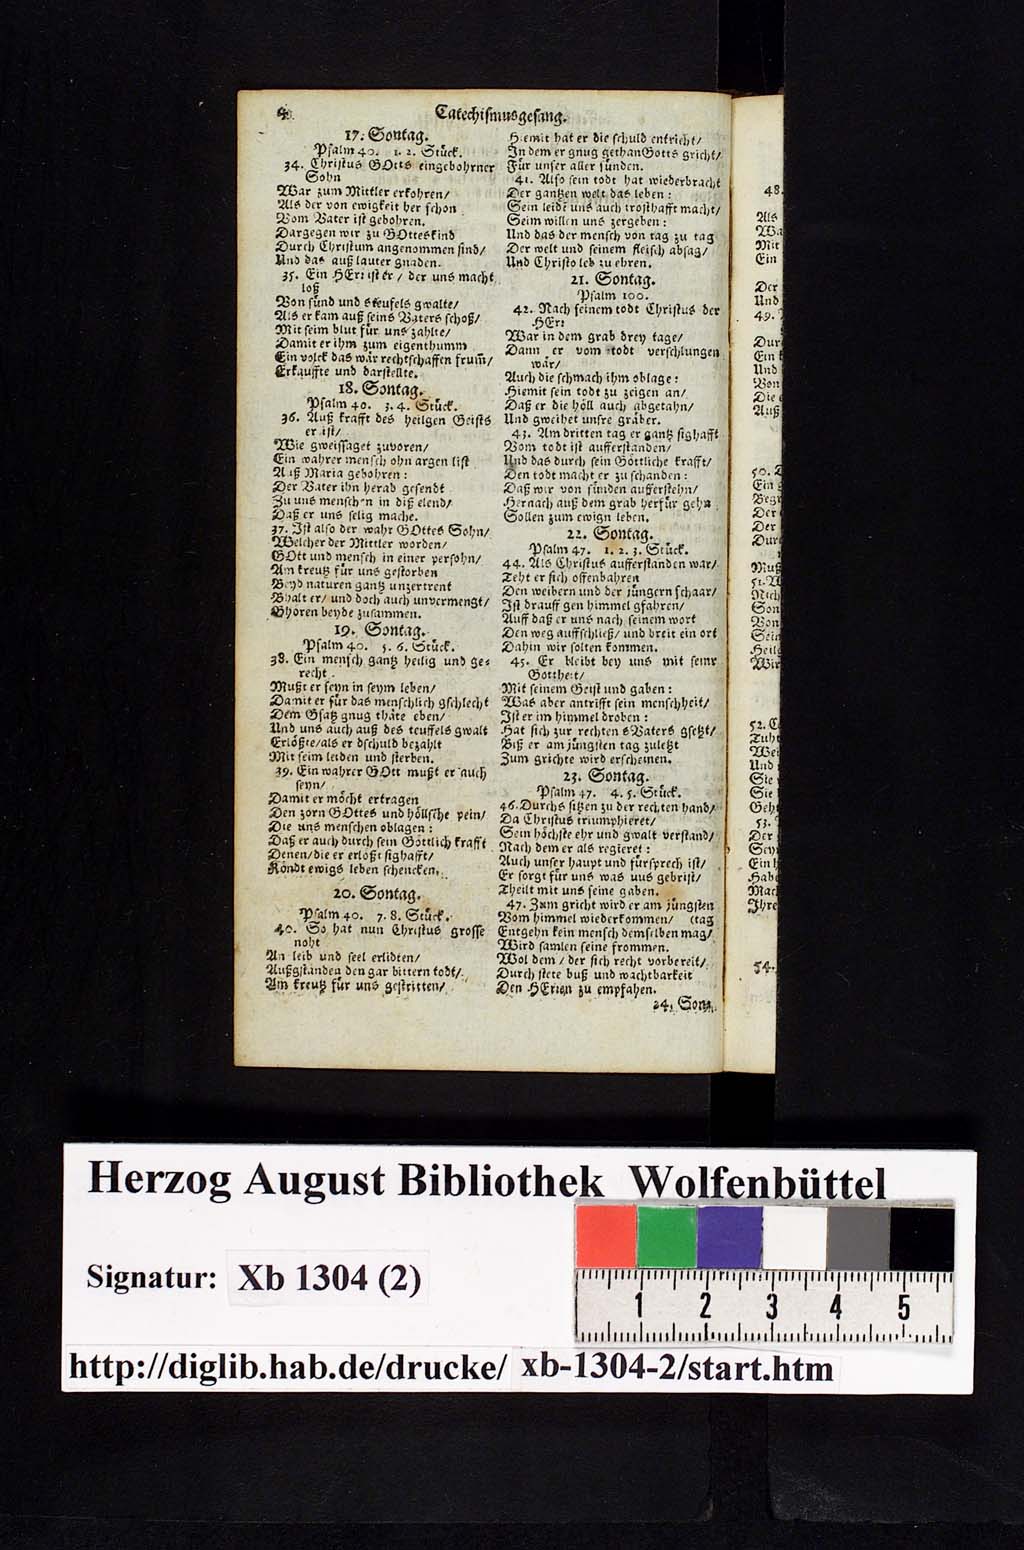 4. Catechismusgesang.
17. Sontag.
Psalm 40. 1. 2. Stück.
34. Christus GOtts eingebohrner
Sohn
War zum Mittler erkohren/
Als der von ewigkeit her schon
Vom Vater ist gebohren.
Dargegen wir zu GOttes kind
Durch Christum angenommen sind/
Und das auß lauter gnaden.
35. Ein HErr ist er / der uns macht
loß
Von sünd und steufels gwalte/
Als er kam auß seins Vaters schoß/
Mit seim blut für uns zahlte/
Damit er ihm zum eigenthumm
Ein volck das wär rechtschaffen frum̃/
Erkauffte und darstellte.
18. Sontag.
Psalm 40. 3. 4. Stück.
36. Auß krafft des heilgen Geists
er ist/
Wie gweissaget zuvoren/
Ein wahrer mensch ohn argen list
Auß Maria gebohren:
Der Vater ihn herab gesendt
Zu uns menschen in diß elend/
Daß er uns selig mache.
37. Ist also der wahr GOttes Sohn/
Welcher der Mittler worden/
GOtt und mensch in einer persohn/
Am kreutz für uns gestorben
Beyd naturen gantz unzertrent
Bhalt er/ und doch auch unvermengt/
Ghören beyde zusammen.
19. Sontag.
Psalm 40. 5. 6. Stück.
38. Ein mensch gantz heilig und ge-
recht
Mußt er seyn in seym leben/
Damit er für das menschlich gschlecht
Dem Gsatz gnug thäte eben/
Und uns auch auß des teuffels gwalt
Erlößte/als er dschuld bezahlt
Mit seim leiden und sterben.
39. Ein wahrer GOtt mußt er auch
seyn/
Damit er möcht ertragen
Den zorn GOttes und höllsche pein/
Die uns menschen oblagen:
Daß er auch durch sein Göttlich krafft
Denen/die er erlößt sighafft/
Köndt ewigs leben schencken.
20. Sontag.
Psalm 40. 7. 8. Stück.
40. So hat nun Christus grosse
noht
An leib und seel erlidten/
Außgstanden den gar bittern todt/
Am kreutz für uns gestritten/
Hiemit hat er die schuld entricht/
In dem er gnug gethan Gotts gricht/
Für unser aller sünden.
41. Also sein todt hat wiederbracht
Der gantzen welt das leben:
Sein leidt uns auch trosthafft macht/
Seim willen uns zergeben:
Und das der mensch von tag zu tag
Der welt und seinem fleisch absag/
Und Christo leb zu ehren.
21. Sontag.
Psalm 100.
42. Nach seinem todt Christus der
HErr
War in dem grab drey tage/
Dann er vom todt verschlungen
wär/
Auch die schmach ihm oblage:
Hiemit sein todt zu zeigen an/
Daß er die höll auch abgetahn/
Und gweihet unsre gräber.
43. Am dritten tag er gantz sighafft
Vom todt ist aufferstanden/
Und das durch sein Göttliche krafft/
Den todt macht er zu schanden:
Daß wir von sünden aufferstehn/
Hernach auß dem grab herfür gehn
Sollen zum ewign leben.
22. Sontag.
Psalm 47. 1. 2. 3. Stück.
44. Als Christus aufferstanden war/
Teht er sich offenbahren
Den weibern und der jüngern schaar/
Ist drauff gen himmel gfahren/
Auff daß er uns nach seinem wort
Den weg auffschließ/ und breit ein ort
Dahin wir solten kommen.
45. Er bleibt bey uns mit seinr
Gottheit/
Mit seinem Geist und gaben:
Was aber antrifft sein menschheit/
Ist er im himmel droben:
Hat sich zur rechten sVaters gsetzt/
Biß er am jüngsten tag zuletzt
Zum grichte wird erscheinen.
23. Sontag.
Psalm 47. 4. 5. Stück.
46. Durchs sitzen zu der rechten hand/
Da Christus triumphieret/
Sein höchste ehr und gwalt verstand/
Nach dem er als regieret:
Auch unser haupt und fürsprech ist/
Er sorgt für uns was uns gebrist/
Theilt mit uns seine gaben.
47. Zum gricht wird er am jüngsten
Vom himmel wiederkommen/ (tag
Entgehn kein mensch demselben mag/
Wird samlen seine frommen.
Wol dem / der sich recht vorbereit/
Durch stete buß und wachtbarkeit
Den HErren zu empfahen.
24. Sont.
48.
Als
Mit
Ein
Der
Und
49.
Ein
Und
Von
Die
Auß
50.
Ein
Der
Der
Muß
51.
Son
Von
52.
Und
Sie
Sie
53.
Der
Ein
Ihre
54.
Herzog August Bibliothek Wolfenbüttel
Signatur: Xb 1304 (2)
1 2 3 4 5
http://diglib.hab.de/drucke/ xb-1304-2/start.htm